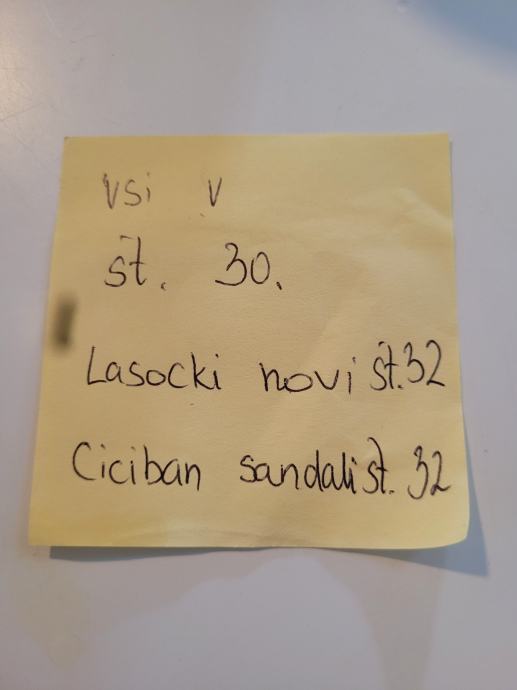 vsi v
št. 30.
Lasocki novi št.32
Ciciban sandali št. 32